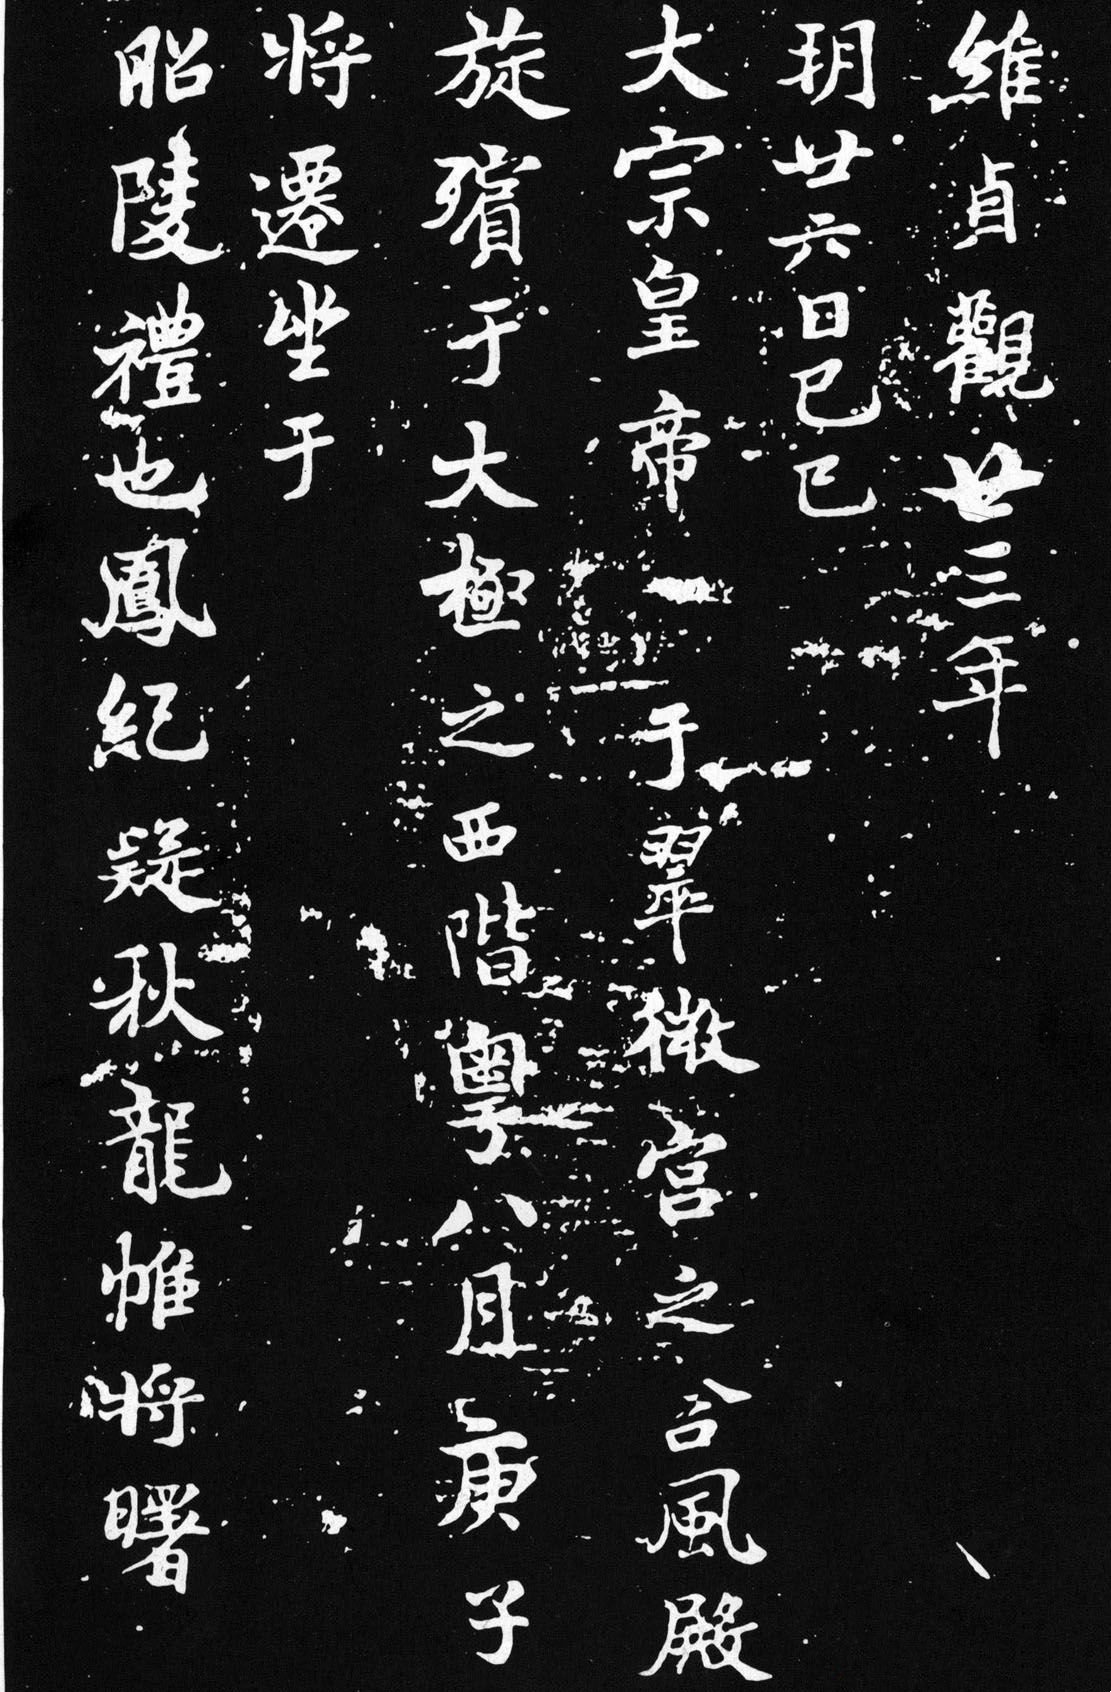 維貞觀廿三年
玥廿六日已巳
大宗皇帝一于翠微宮之含風殿
旋殯于大極之西階粵八月庚子
将遷坐于
昭陵禮也鳳紀疑秋龍帷将曙